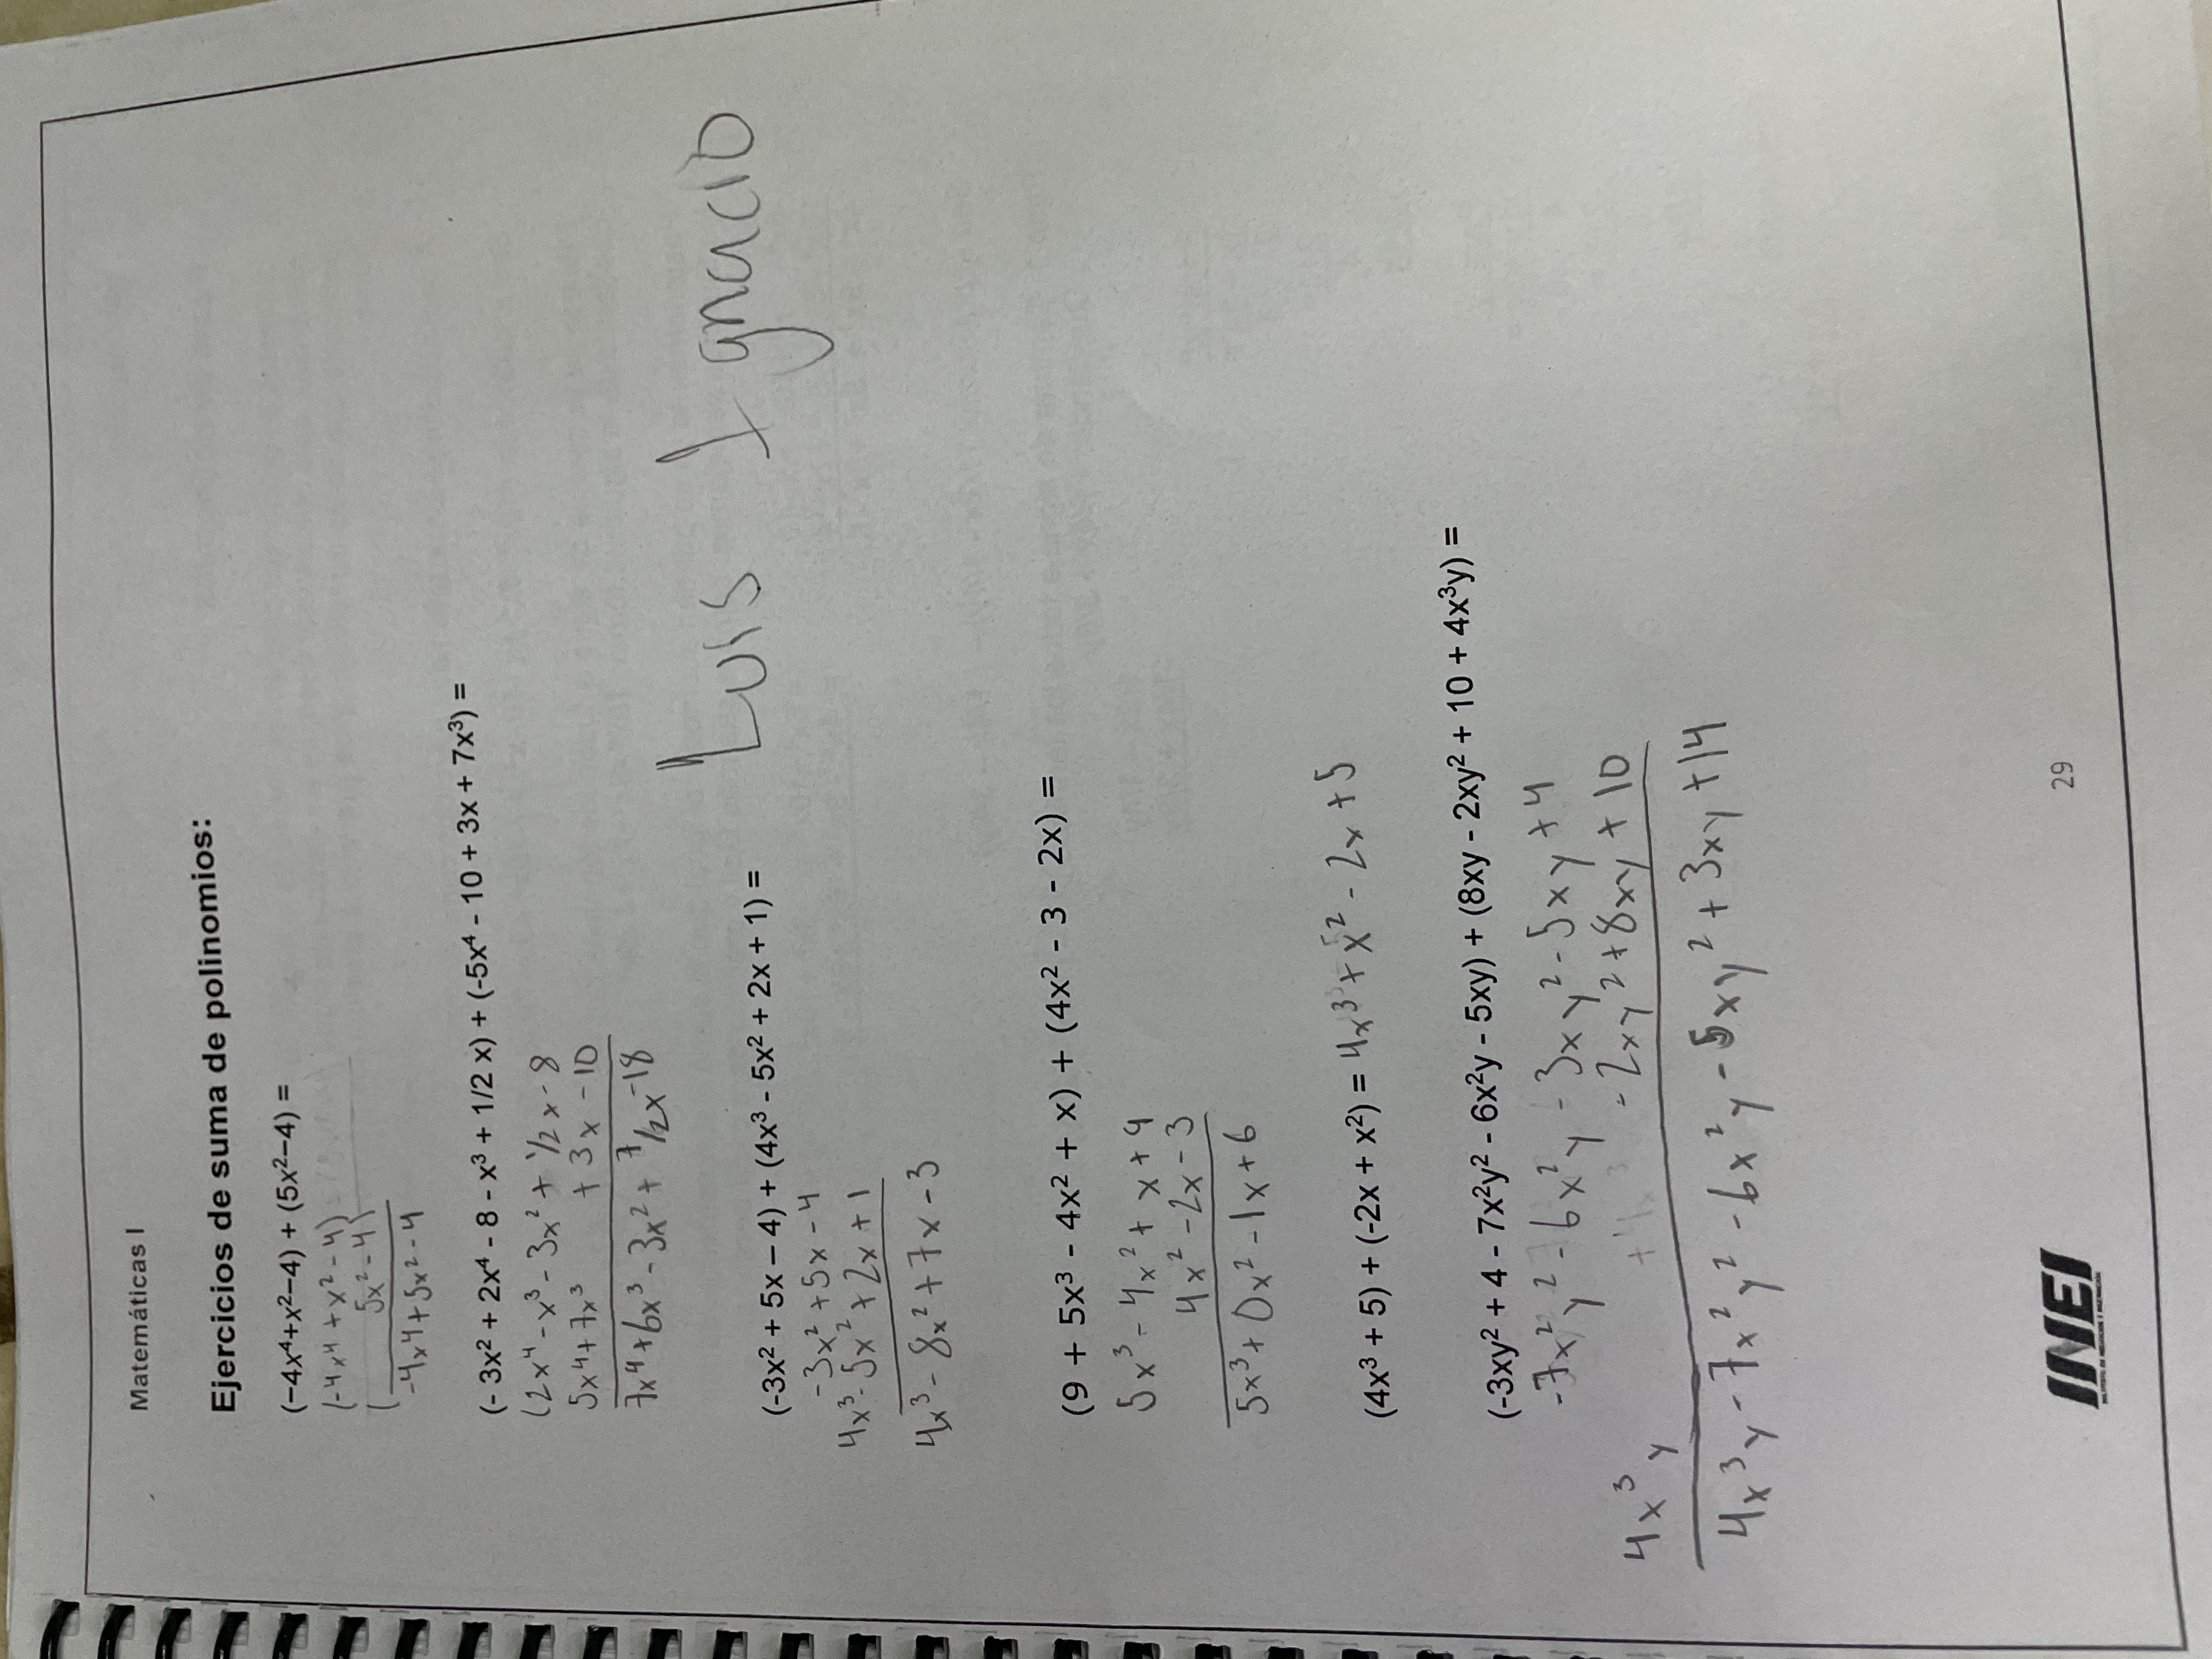 Matemáticas I
Ejercicios de suma de polinomios:
(−4x⁴+x²−4) + (5x²−4) =
(-4x⁴ + x² - 4)
( 5x² - 4)
-4x⁴ + 5x² - 4
(- 3x² + 2x⁴ - 8 - x³ + 1/2 x) + (-5x⁴ - 10 + 3x + 7x³) =
(2x⁴ - x³ - 3x² + 1/2 x - 8
5x⁴ + 7x³ + 3x - 10
7x⁴ + 6x³ - 3x² + 7/2x - 18
Luis Ignacio
(-3x² + 5x – 4) + (4x³ - 5x² + 2x + 1) =
-3x² + 5x - 4
4x³ - 5x² + 2x + 1
4x³ - 8x² + 7x - 3
(9 + 5x³ - 4x² + x) + (4x² - 3 - 2x) =
5x³ - 4x² + x + 9
4x² - 2x - 3
5x³ + 0x² - 1x + 6
(4x³ + 5) + (-2x + x²) = 4x³ + x² - 2x + 5
(-3xy² + 4 - 7x²y² - 6x²y - 5xy) + (8xy - 2xy² + 10 + 4x³y) =
-7x²y² - 6x²y - 3xy² - 5xy + 4
4x³y - 2xy² + 8xy + 10
4x³y - 7x²y² - 6x²y - 5xy² + 3xy + 14
INEI
29